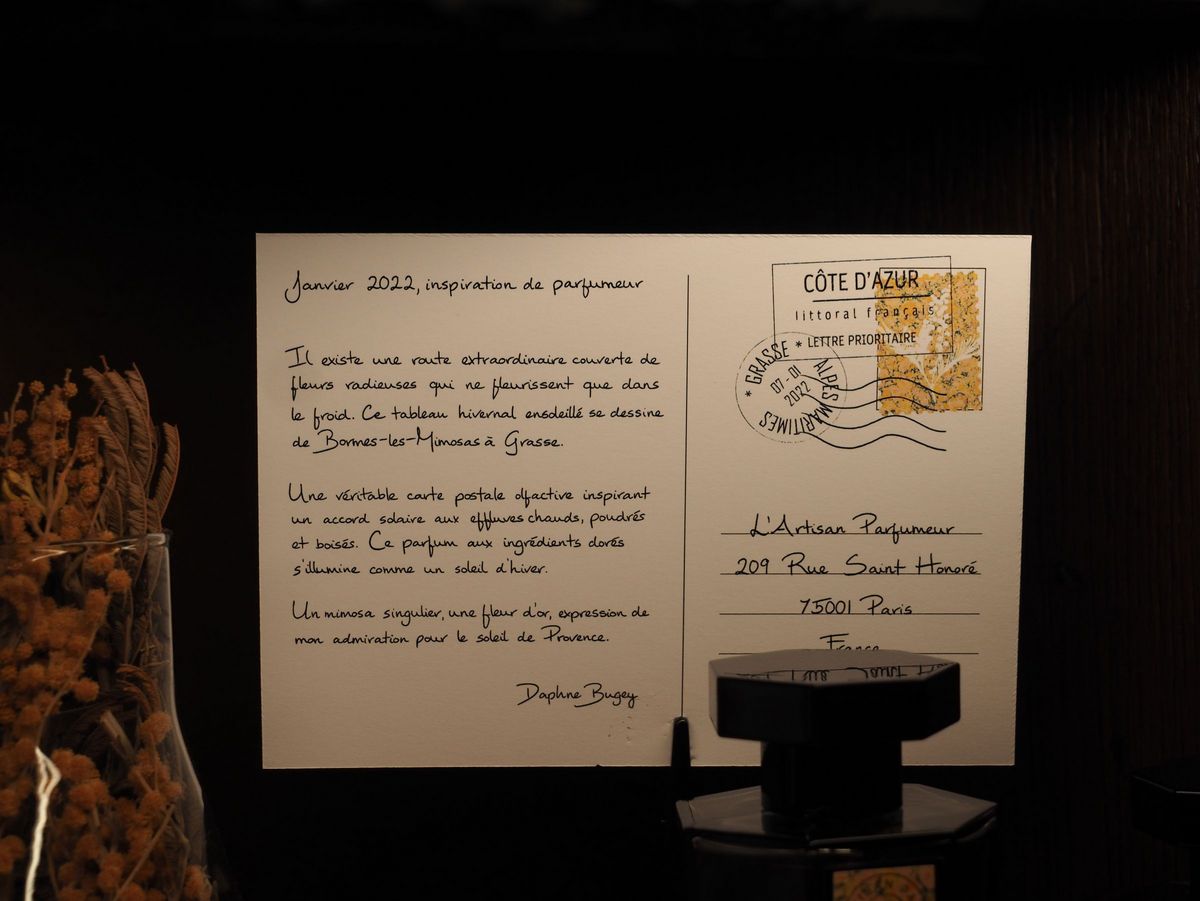 Janvier 2022, inspiration de parfumeur
Il existe une route extraordinaire couverte de
fleurs radieuses qui ne fleurissent que dans
le froid. Ce tableau hivernal ensoleillé se dessine
de Bormes-les-Mimosas à Grasse.
Une véritable carte postale olfactive inspirant
un accord solaire aux effluves chauds, poudrés
et boisés. Ce parfum aux ingrédients dorés
s'illumine comme un soleil d'hiver.
Un mimosa singulier, une fleur d'or, expression de
mon admiration pour le soleil de Provence.
Daphne Bugey
CÔTE D'AZUR
littoral français
* LETTRE PRIORITAIRE
* GRASSE
ALPES MARITIMES
07-01
2022
L'Artisan Parfumeur
209 Rue Saint Honoré
75001 Paris
France